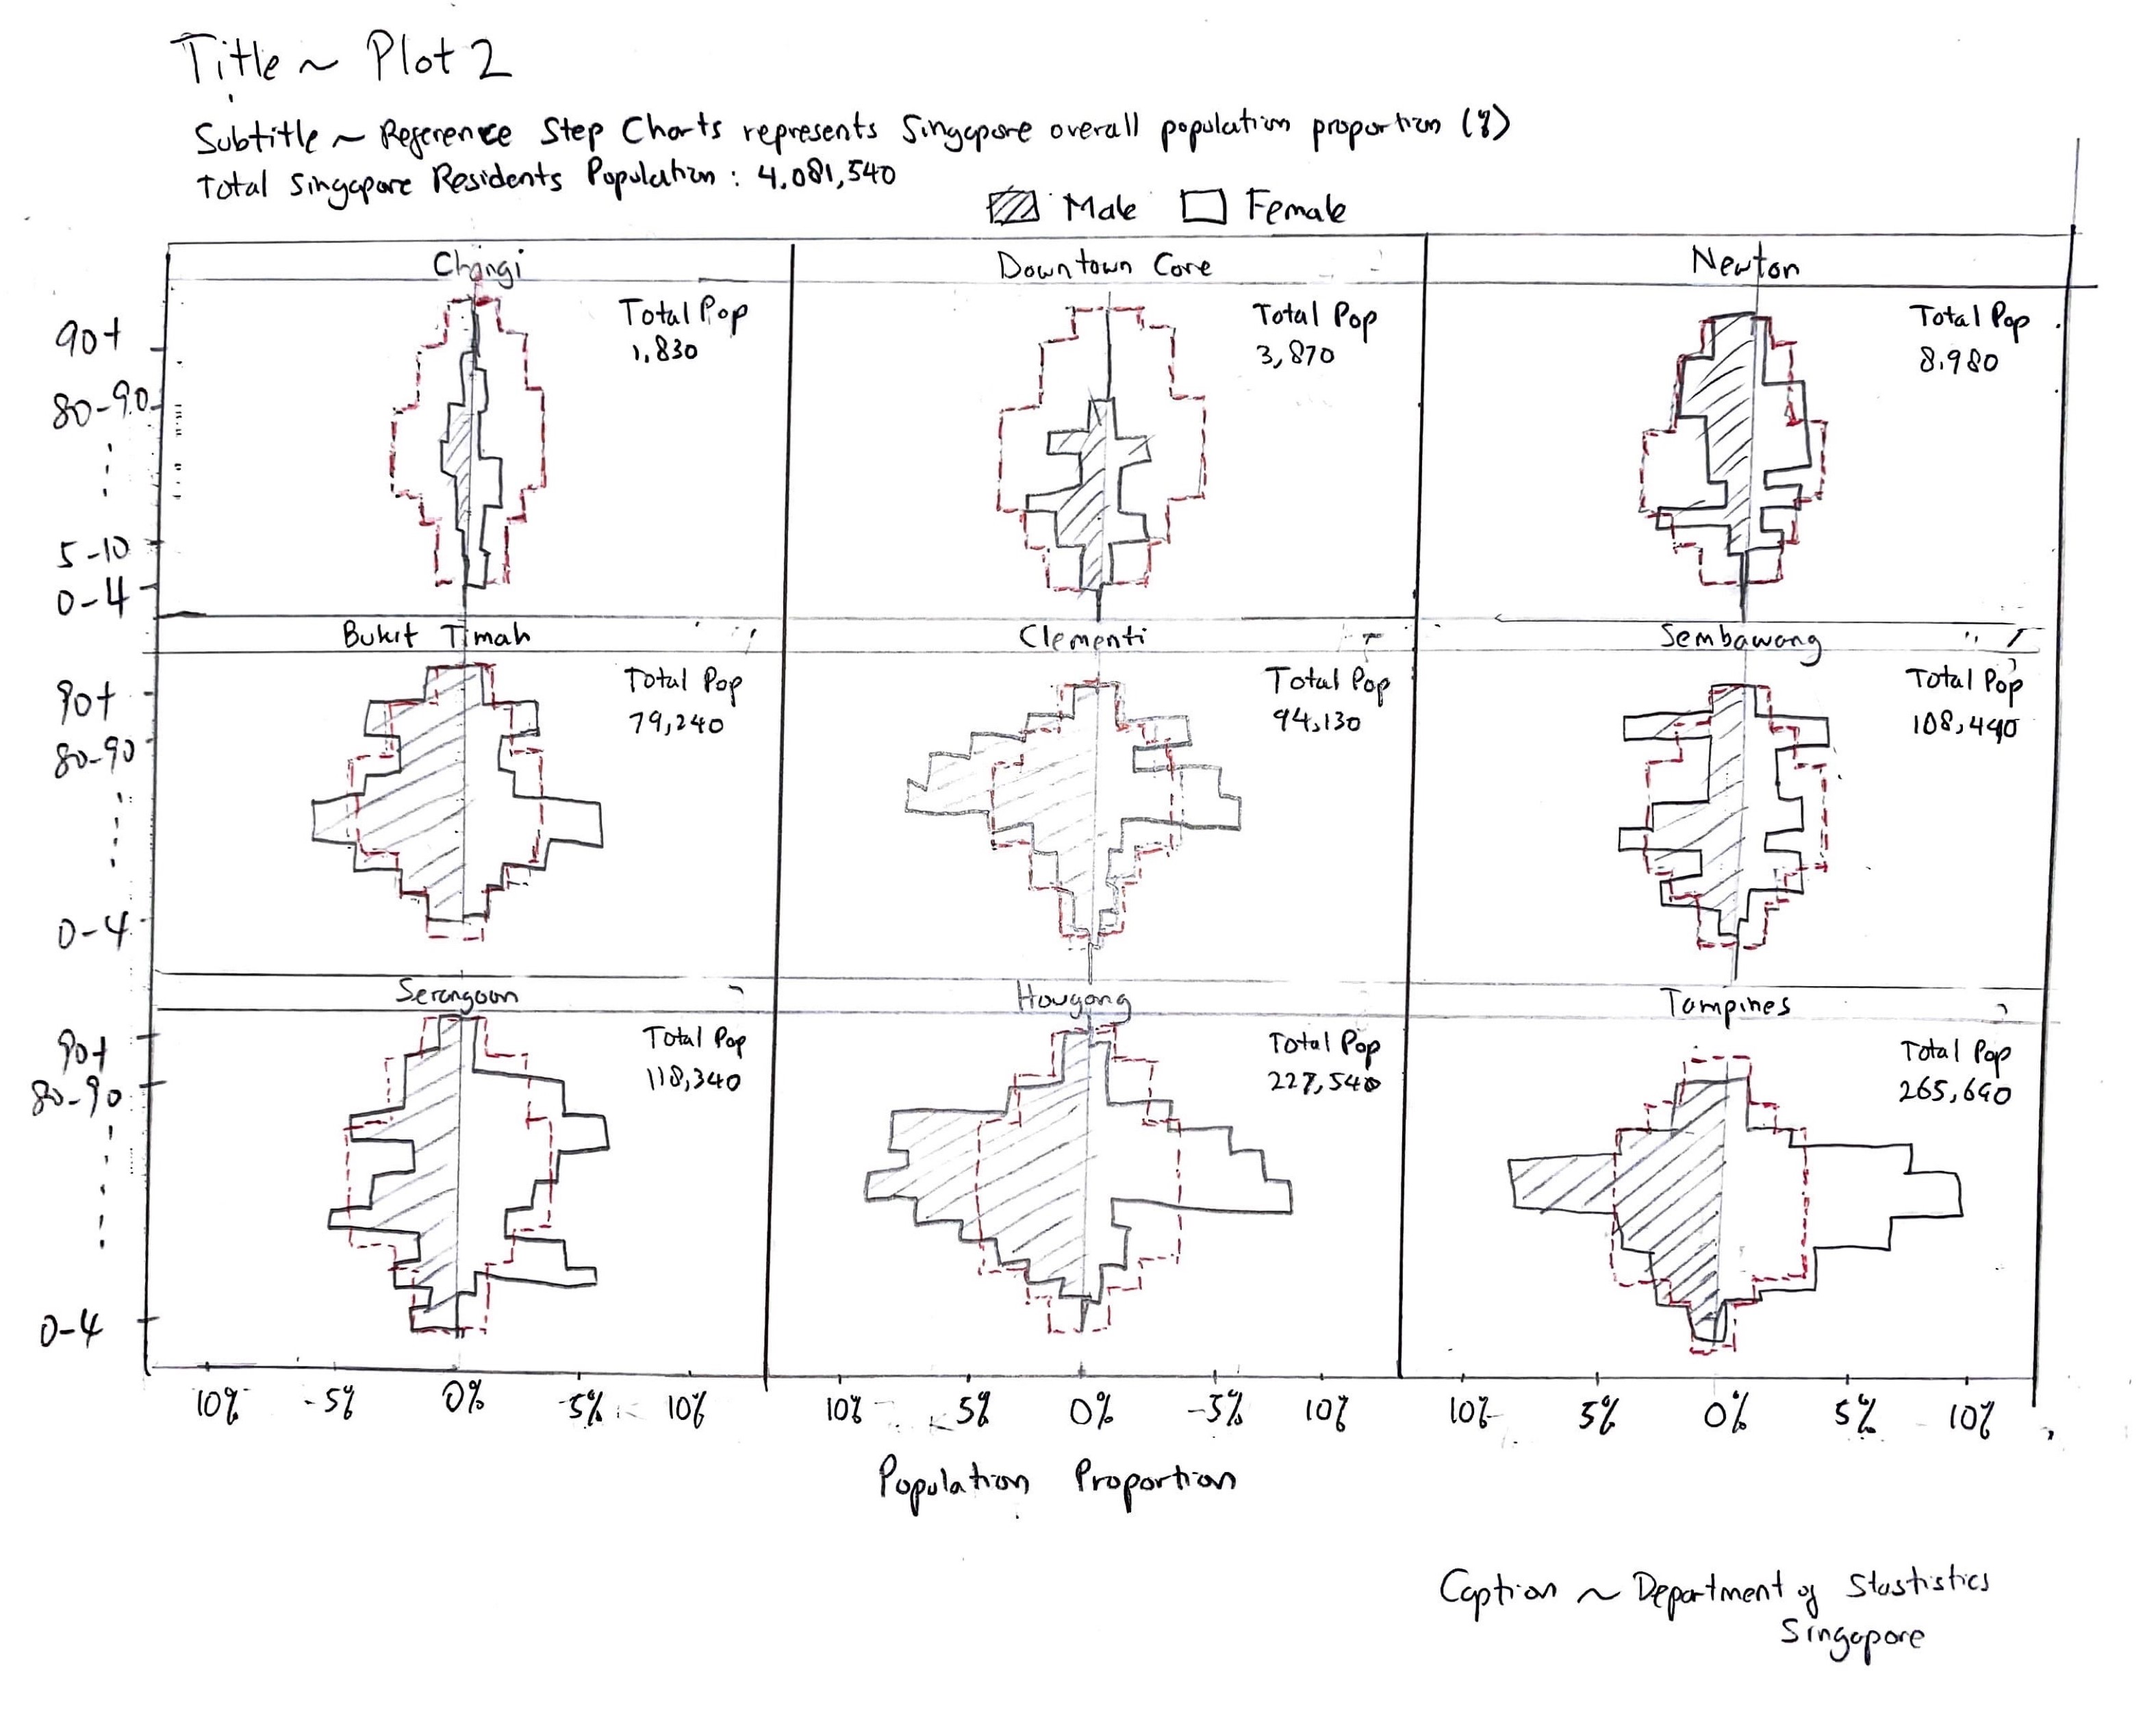 Title ~ Plot 2
Subtitle ~ Reference Step Charts represents Singapore overall population proportion (%)
Total Singapore Residents Population : 4,081,540
Male Female
Changi
Total Pop
1,830
Downtown Core
Total Pop
3,870
Newton
Total Pop
8,980
90+
80-90
5-10
0-4
Bukit Timah
Total Pop
79,240
Clementi
Total Pop
94,130
Sembawang
Total Pop
108,440
90+
80-90
0-4
Serangoon
Total Pop
118,340
Hougang
Total Pop
227,540
Tampines
Total Pop
265,640
90+
80-90
0-4
10% -5% 0% -5% 10% 10% 5% 0% -5% 10% 10% 5% 0% 5% 10%
Population Proportion
Caption ~ Department of Stastistics
Singapore